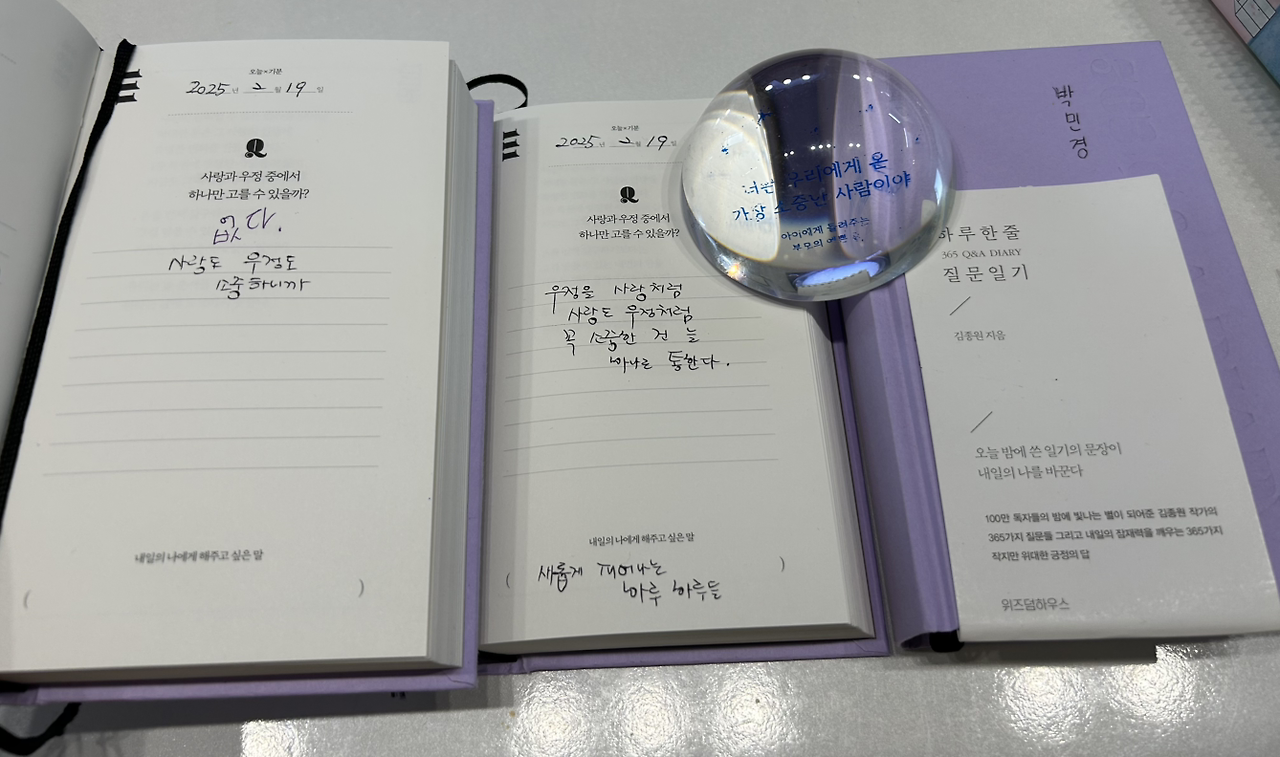 오늘×기분
2025년 2월 19일
Q
사랑과 우정 중에서
하나만 고를 수 있을까?
없다.
사랑도 우정도
소중하니까
내일의 나에게 해주고 싶은 말
( )
오늘×기분
2025년 2월 19일
Q
사랑과 우정 중에서
하나만 고를 수 있을까?
우정을 사랑처럼
사랑도 우정처럼
꼭 소중한 건 늘
하나로 통한다.
내일의 나에게 해주고 싶은 말
( 새롭게 태어나는 )
하루 하루들
너는 우리에게 온
가장 소중한 사람이야
아이에게 들려주는
부모의 예쁜
박민경
하루 한 줄
365 Q&A DIARY
질문 일기
김종원 지음
오늘 밤에 쓴 일기의 문장이
내일의 나를 바꾼다
100만 독자들의 밤에 빛나는 별이 되어준 김종원 작가의
365가지 질문들 그리고 내일의 잠재력을 깨우는 365가지
작지만 위대한 긍정의 답
위즈덤하우스